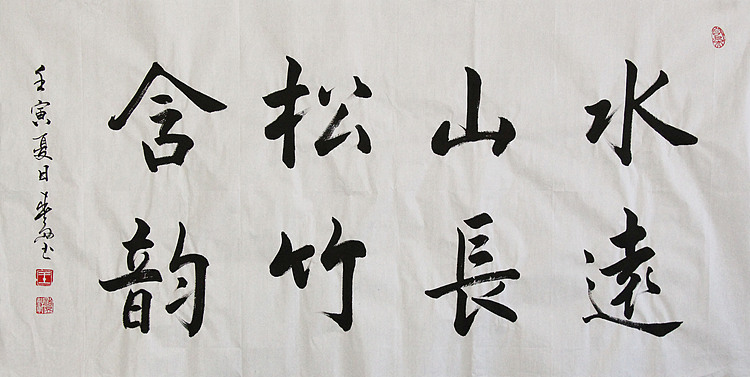 水遠
山長
松竹
含韵
壬寅夏日